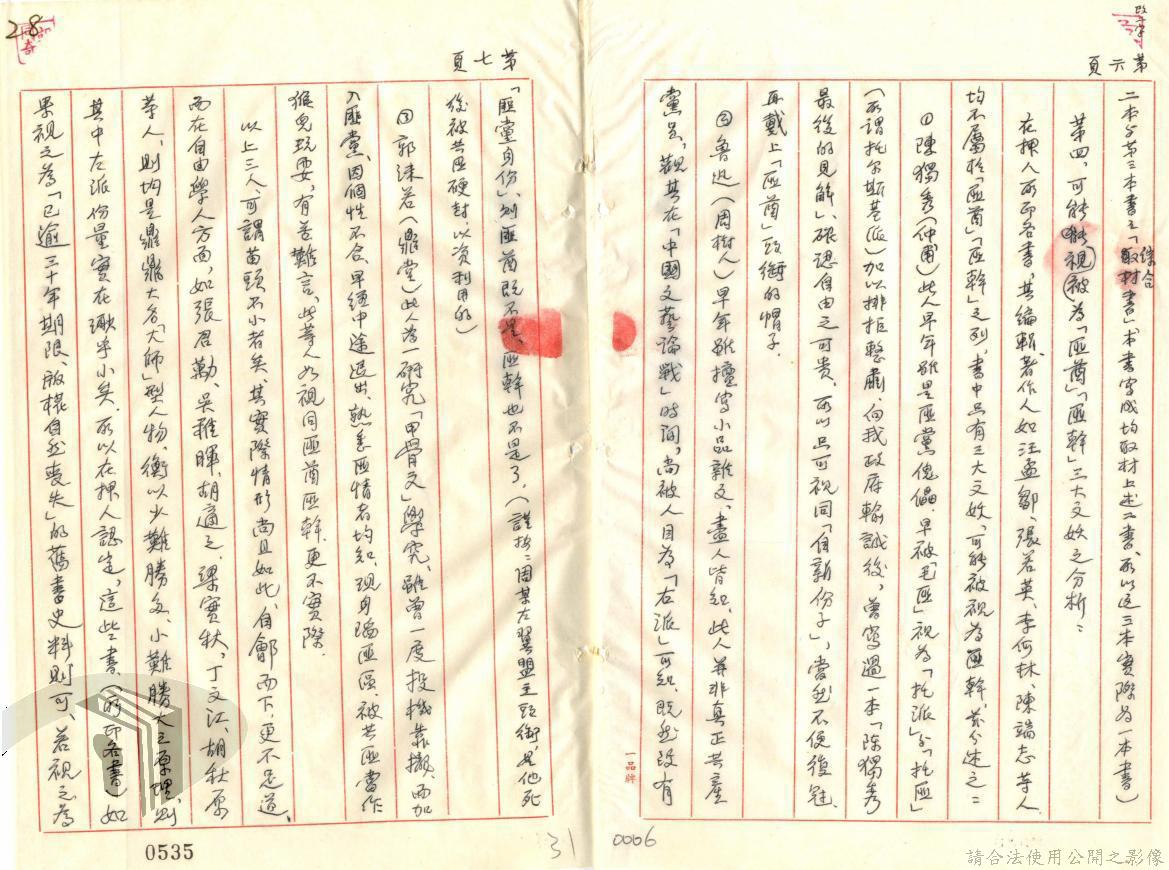 第六頁
二本与第三本書之「綜合取材書」本書寫成均取材上述二書、所以這三本實際為一本書）
第四，可能被視為「匪酋」「匪幹」三大文妖之分析：
在押人所印各書，其編輯、著作人如汪孟鄒、張若英、李何林、陳端志等人
均不屬於「匪酋」「匪幹」之列，書中只有三大文妖、可能被視為匪幹，茲分述之：
(1)陳獨秀（仲甫）此人早年雖是匪黨傀儡，早被毛匪」視為「托派」与「托匪」
（所謂托尔斯基派）加以排拒整肅，向我政府輸誠後，曾寫過一本「陳獨秀
最後的見解」、確認自由之可貴，所以只可視同「自新份子」，當然不便復冠、
再戴上「匪酋」頭銜的帽子．
(2)魯迅（周樹人）早年雖擅寫小品雜文，盡人皆知，此人并非真正共產
黨員，觀其在「中國文藝論戰」時间，尚被人目為「右派」可知，既然没有
一品牌
0006
第七頁
「匪黨身份」，則匪酋既不是、匪幹也不是了，（謹按：周某左翼盟主頭銜，是他死
後被共匪硬封，以資利用的）
(3)郭沫若（鼎堂）此人為一研究「甲骨文」學究，雖曾一度投機靠攏、而加
入匪黨，因個性不合，早經中途退出，熟悉匪情者均知，現身陷匪區，被共匪當作
猴兒玩耍，有苦難言，此等人如視同匪酋匪幹，更不實際．
以上三人，可謂苗頭不小者矣，其實際情形尚且如此，自鄶而下，更不足道、
而在自由學人方面，如張君勱，吳稚暉，胡適之，梁實秋，丁文江，胡秋原
等人，則均是鼎鼎大名「大師」型人物，衡以少難勝多，小難勝大之原理，則
其中左派份量實在渺乎小矣，所以在押人認定，這些書，（所印各書）如
果視之為「已逾三十年期限、版權自然喪失」的舊書史料則可、若視之為
31
0535
28
請合法使用公開之影像